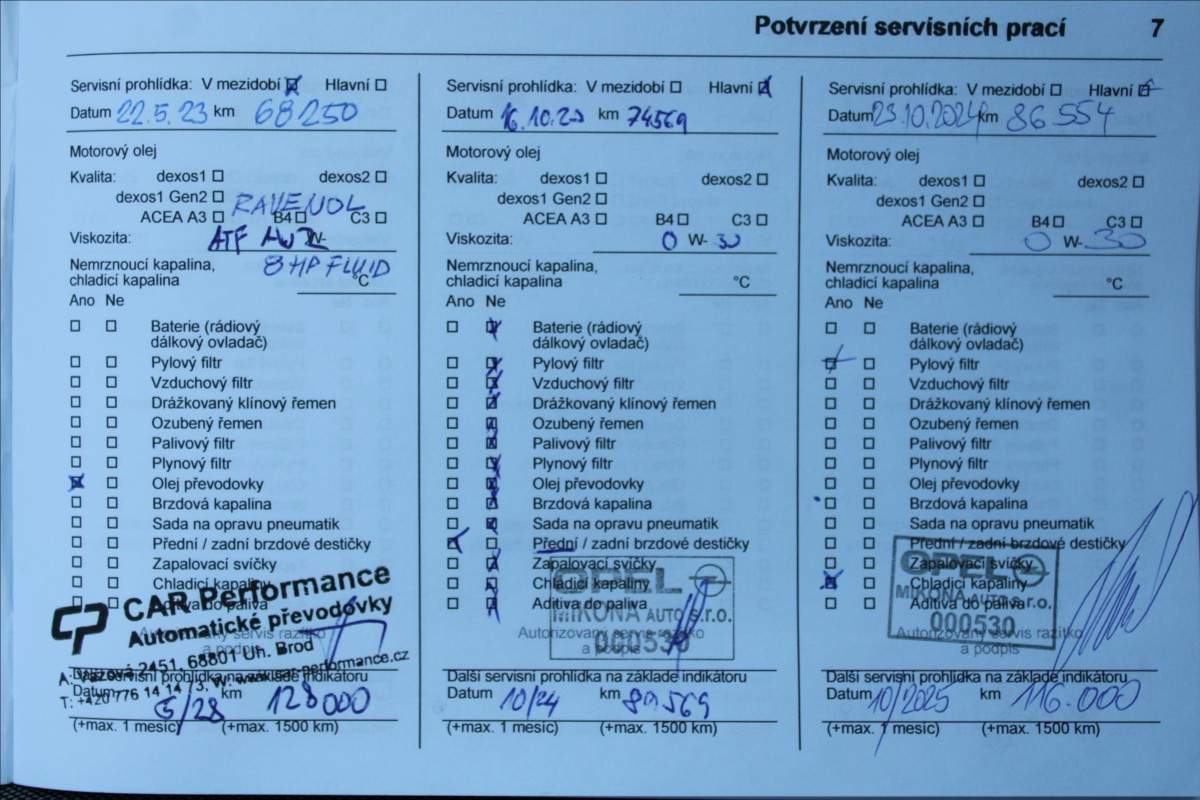 Potvrzení servisních prací 7
Servisní prohlídka: V mezidobí Hlavní
Datum 22.5.23 km 68250
Motorový olej
Kvalita: dexos1 dexos2
dexos1 Gen2 RAVENOL
ACEA A3 B4 C3
Viskozita: ATF W-
Nemrznoucí kapalina, 8HP FLUID
chladicí kapalina °C
Ano Ne
Baterie (rádiový
dálkový ovladač)
Pylový filtr
Vzduchový filtr
Drážkovaný klínový řemen
Ozubený řemen
Palivový filtr
Plynový filtr
Olej převodovky
Brzdová kapalina
Sada na opravu pneumatik
Přední / zadní brzdové destičky
Zapalovací svíčky
Chladicí kapaliny
Aditiva do paliva
CAR Performance
Automatické převodovky
Autorizovaný servis razítko
a podpis
2451, 68801 Uh. Brod
T: +420 776 14 14 73, W: www.car-performance.cz
Další servisní prohlídka na základě indikátoru
Datum 5/28 km 128000
(+max. 1 měsíc) (+max. 1500 km)
Servisní prohlídka: V mezidobí Hlavní
Datum 16.10.23 km 74569
Motorový olej
Kvalita: dexos1 dexos2
dexos1 Gen2
ACEA A3 B4 C3
Viskozita: 0 W- 30
Nemrznoucí kapalina,
chladicí kapalina °C
Ano Ne
Baterie (rádiový
dálkový ovladač)
Pylový filtr
Vzduchový filtr
Drážkovaný klínový řemen
Ozubený řemen
Palivový filtr
Plynový filtr
Olej převodovky
Brzdová kapalina
Sada na opravu pneumatik
Přední / zadní brzdové destičky
Zapalovací svíčky
Chladicí kapaliny
Aditiva do paliva
OPEL
MIKONA AUTO s.r.o.
000530
Autorizovaný servis razítko
a podpis
Další servisní prohlídka na základě indikátoru
Datum 10/24 km 89569
(+max. 1 měsíc) (+max. 1500 km)
Servisní prohlídka: V mezidobí Hlavní
Datum 23.10.2024 km 86554
Motorový olej
Kvalita: dexos1 dexos2
dexos1 Gen2
ACEA A3 B4 C3
Viskozita: 0 W- 30
Nemrznoucí kapalina,
chladicí kapalina °C
Ano Ne
Baterie (rádiový
dálkový ovladač)
Pylový filtr
Vzduchový filtr
Drážkovaný klínový řemen
Ozubený řemen
Palivový filtr
Plynový filtr
Olej převodovky
Brzdová kapalina
Sada na opravu pneumatik
Přední / zadní brzdové destičky
Zapalovací svíčky
Chladicí kapaliny
Aditiva do paliva
OPEL
MIKONA AUTO s.r.o.
000530
Autorizovaný servis razítko
a podpis
Další servisní prohlídka na základě indikátoru
Datum 10/2025 km 116.000
(+max. 1 měsíc) (+max. 1500 km)